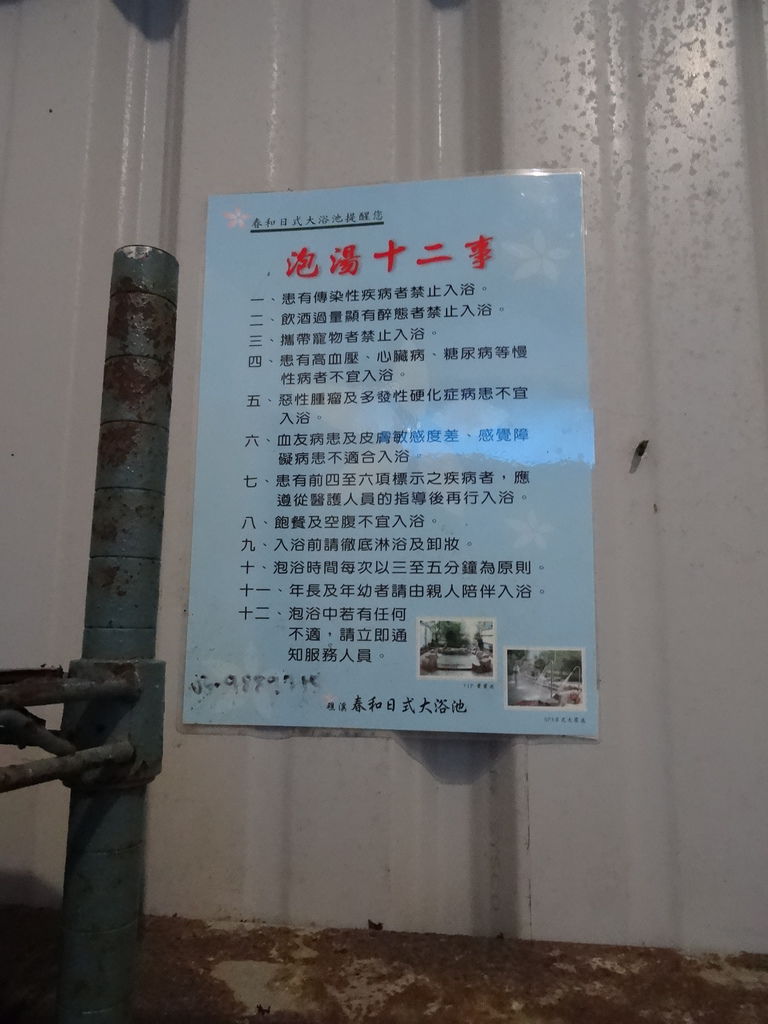 春和日式大浴池提醒您
泡湯十二事
一、患有傳染性疾病者禁止入浴。
二、飲酒過量顯有醉態者禁止入浴。
三、攜帶寵物者禁止入浴。
四、患有高血壓、心臟病、糖尿病等慢
性病者不宜入浴。
五、惡性腫瘤及多發性硬化症病患不宜
入浴。
六、血友病患及皮膚敏感度差、感覺障
礙病患不適合入浴。
七、患有前四至六項標示之疾病者，應
遵從醫護人員的指導後再行入浴。
八、飽餐及空腹不宜入浴。
九、入浴前請徹底淋浴及卸妝。
十、泡浴時間每次以三至五分鐘為原則。
十一、年長及年幼者請由親人陪伴入浴。
十二、泡浴中若有任何
不適，請立即通
知服務人員。
礁溪 春和日式大浴池